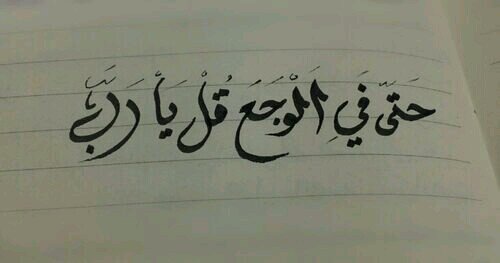 حَتَّى فَي الَوْجَعَ قُلْ يَا رَبَّ